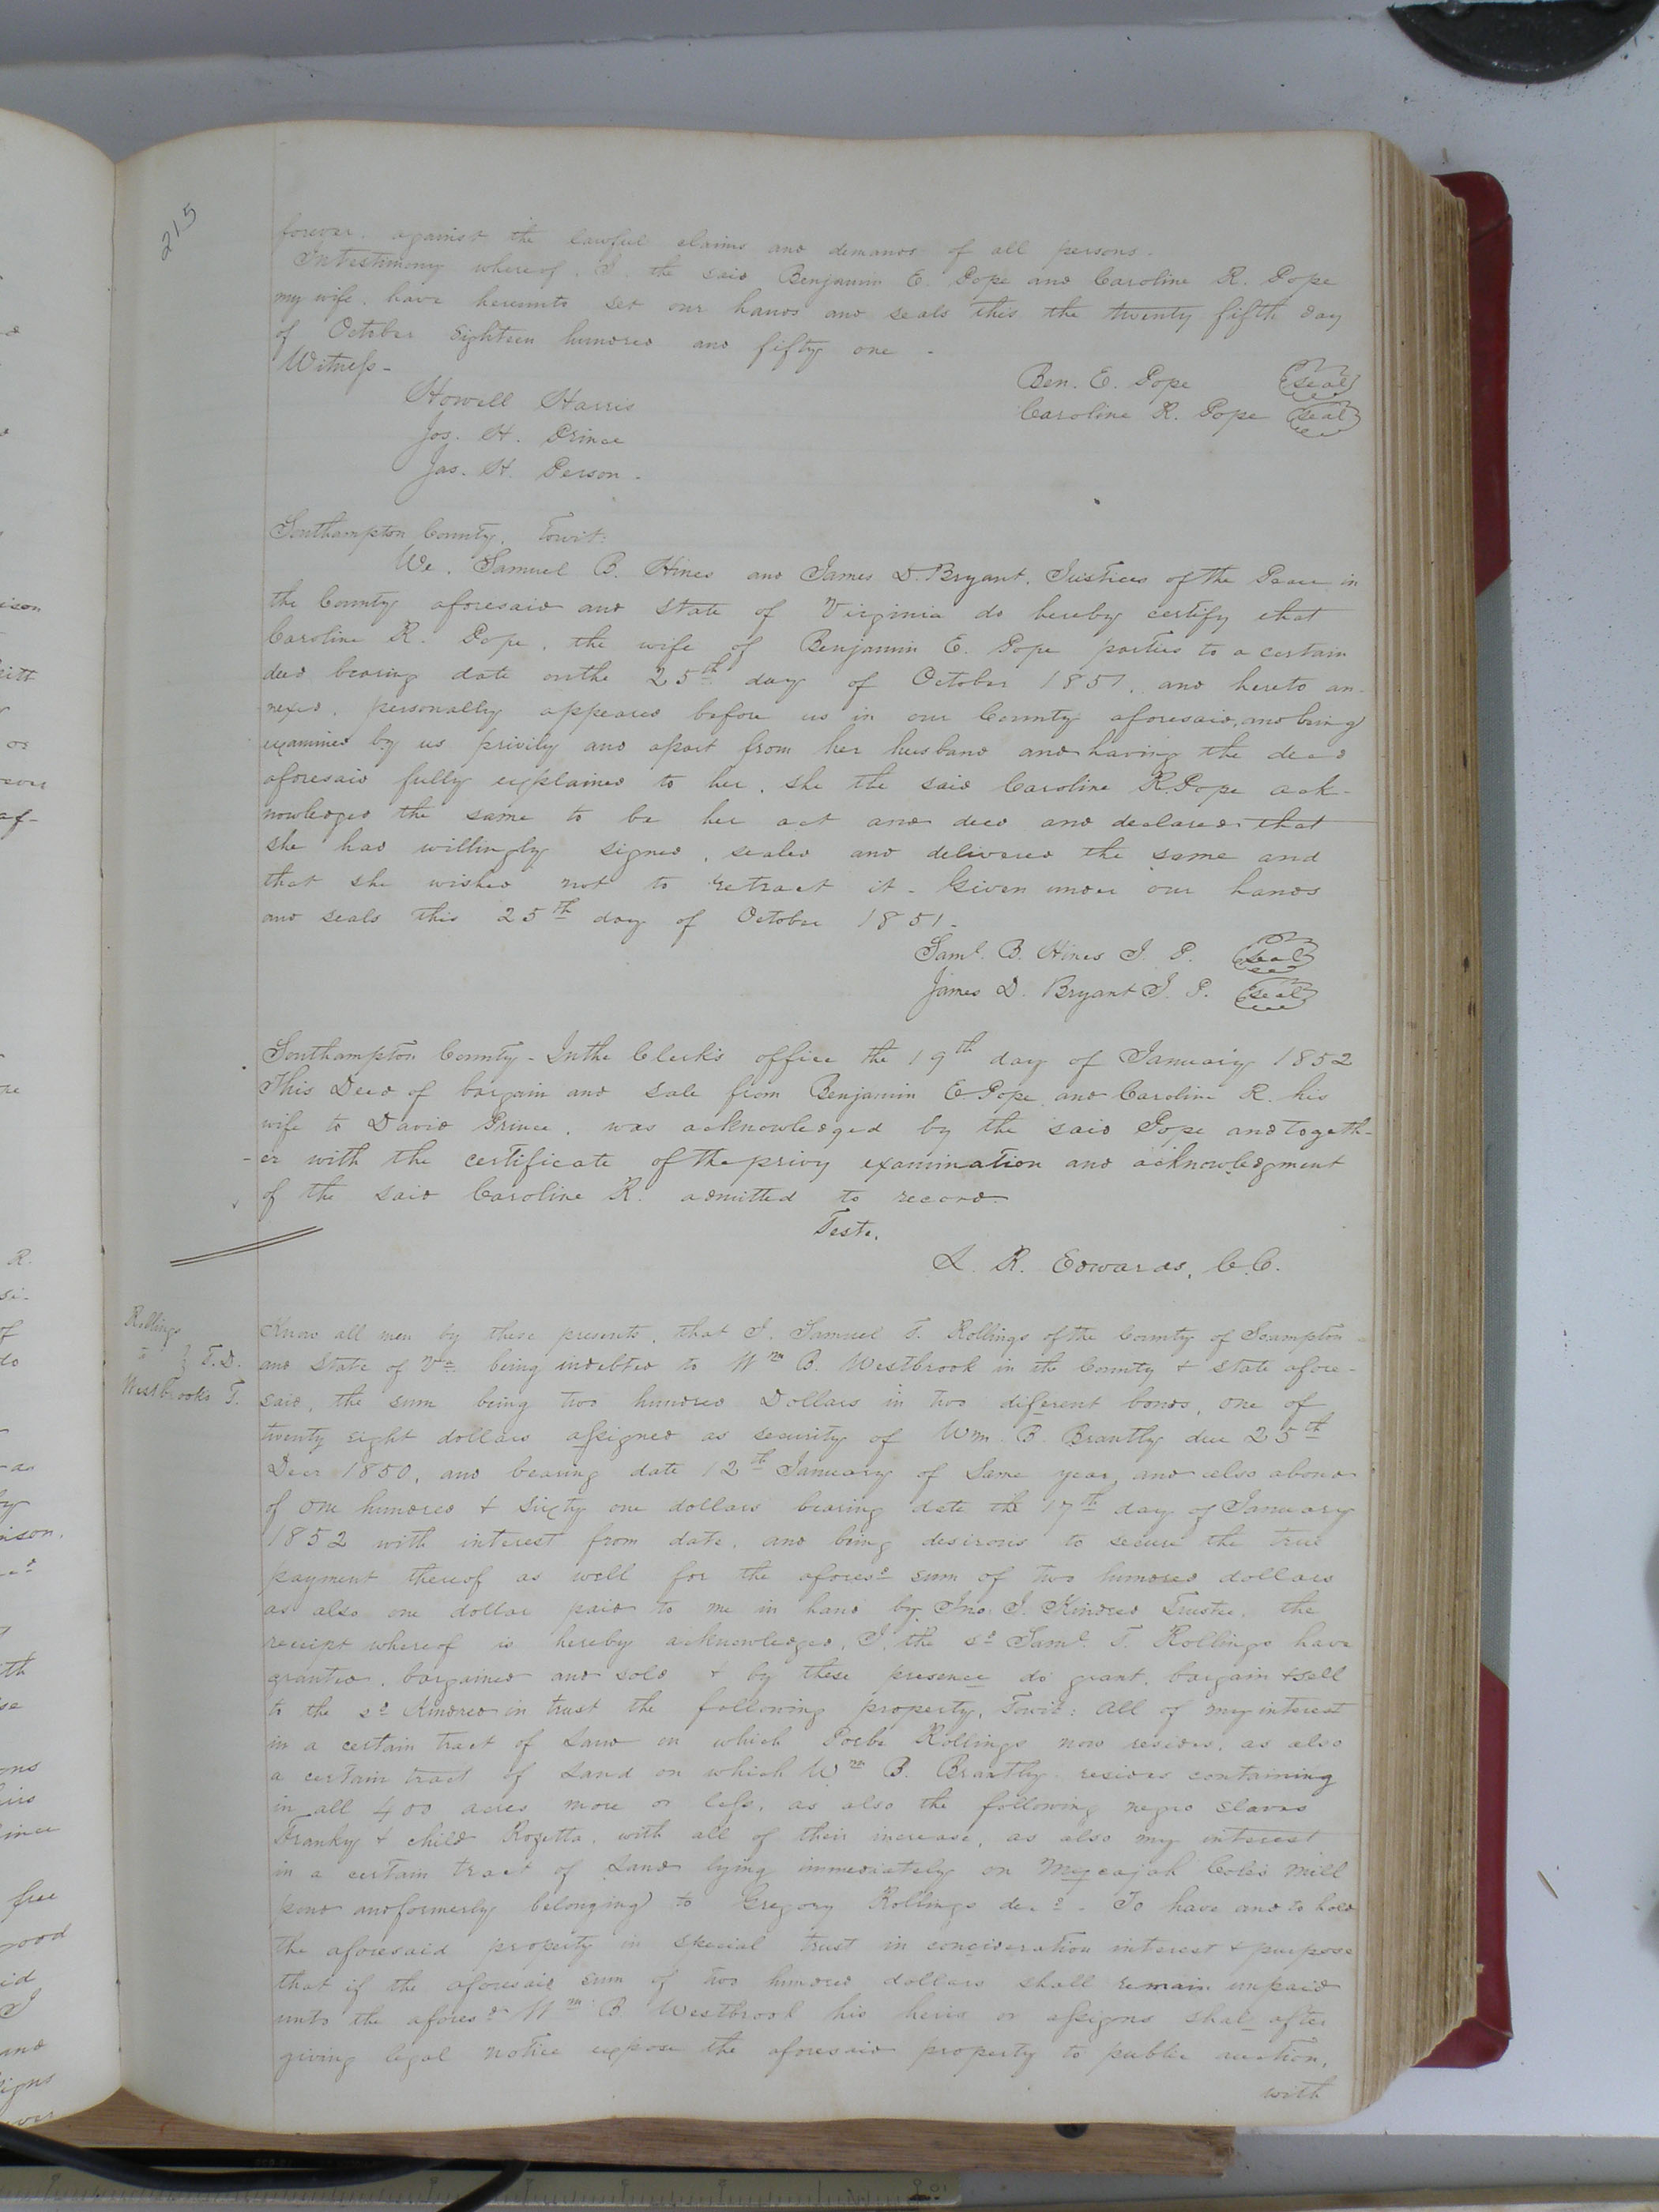 215
forever. against the lawful claims and demands of all persons.
In testimony whereof. I. the said Benjamin E. Pope and Caroline R. Pope
my wife. have hereunto set our hands and seals this the twenty fifth day
of October Eighteen hundred and fifty one -
Witness-
Ben. E. Pope Seal
Howell Harris
Caroline R. Pope Seal
Jos. H. Prince
Jas. H. Person.
Southampton County. Towit:
We. Samuel B. Hines and James D. Bryant. Justices of the Peace in
the County aforesaid and State of Virginia do hereby certify that
Caroline R. Pope, the wife of Benjamin E. Pope parties to a certain
deed bearing date on the 25th day of October 1851. and hereto an-
nexed. personally appeared before us in our County aforesaid, and being
examined by us privily and apart from her husband and having the deed
aforesaid fully explained to her. she the said Caroline R. Pope ack-
nowledged the same to be her act and deed and declared that
she had willingly signed, sealed and delivered the same and
that she wished not to retract it. Given under our hands
and seals this 25th day of October 1851.
Saml. B. Hines J. P. Seal
James D. Bryant J. P. Seal
Southampton County - In the Clerk's office the 19th day of January 1852
This Deed of bargain and sale from Benjamin E. Pope and Caroline R. his
wife to David Prince. was acknowledged by the said Pope and togeth-
-er with the certificate of the privy examination and acknowledgment
of the said Caroline R. admitted to record.
Teste.
L. R. Edwards, C.C.
Rollings
to } T.D.
Westbrooks T.
Know all men by these presents, that I. Samuel T. Rollings of the County of Soampton
and State of Va being indebted to Wm B. Westbrook in the County & State afore-
said, the sum being two hundred Dollars in two diferent bonds, one of
twenty eight dollars assigned as security of Wm. B. Brantly due 25th
Decr 1850, and bearing date 12th January of Same year, and also a bond
of one hundred & sixty one dollars bearing date the 17th day of January
1852 with interest from date, and being desirous to secure the true
payment thereof as well for the aforesd sum of two hundred dollars
as also one dollar paid to me in hand by Jno. J. Kindred Trustee, the
receipt whereof is hereby acknowledged, I, the sd Saml. T. Rollings have
granted, bargained and sold & by these presence do grant, bargain & sell
to the sd Kindred in trust the following property, Towit: all of my interest
in a certain tract of Land on which Poebe Rollings now resides, as also
a certain tract of Land on which Wm B. Brantly resides containing
in all 400 acres more or less, as also the following negro slaves
Franky & child Rozetta, with all of their increase, as also my interest
in a certain tract of Land lying immediately on Mycajah Coles mill
pond and formerly belonging to Gregory Rollings decd. To have and to hold
the aforesaid property in special trust in concideration interest & purpose
that if the aforesaid sum of two hundred dollars shall remain unpaid
unto the aforesd Wm B. Westbrook his heirs or assigns shall after
giving legal notice expose the aforesaid property to public auction,
with